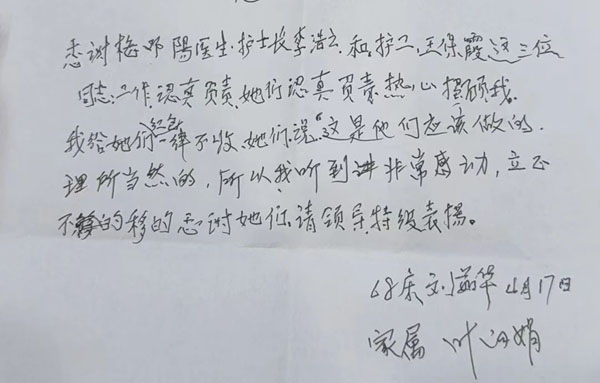 感谢梅邓陽医生.护士长李浩云.和.护工.王保霞这三位
同志.工作.認真負責.她们認真負责.热心照顾我.
我给她们红包一律不收.她们.说"这是他们应该做的.
理所当然的,所以我听到讲非常感动,立正
不移的感谢她们.请领导特级表揚。
68床刘益华4月17日
家属 叶娟